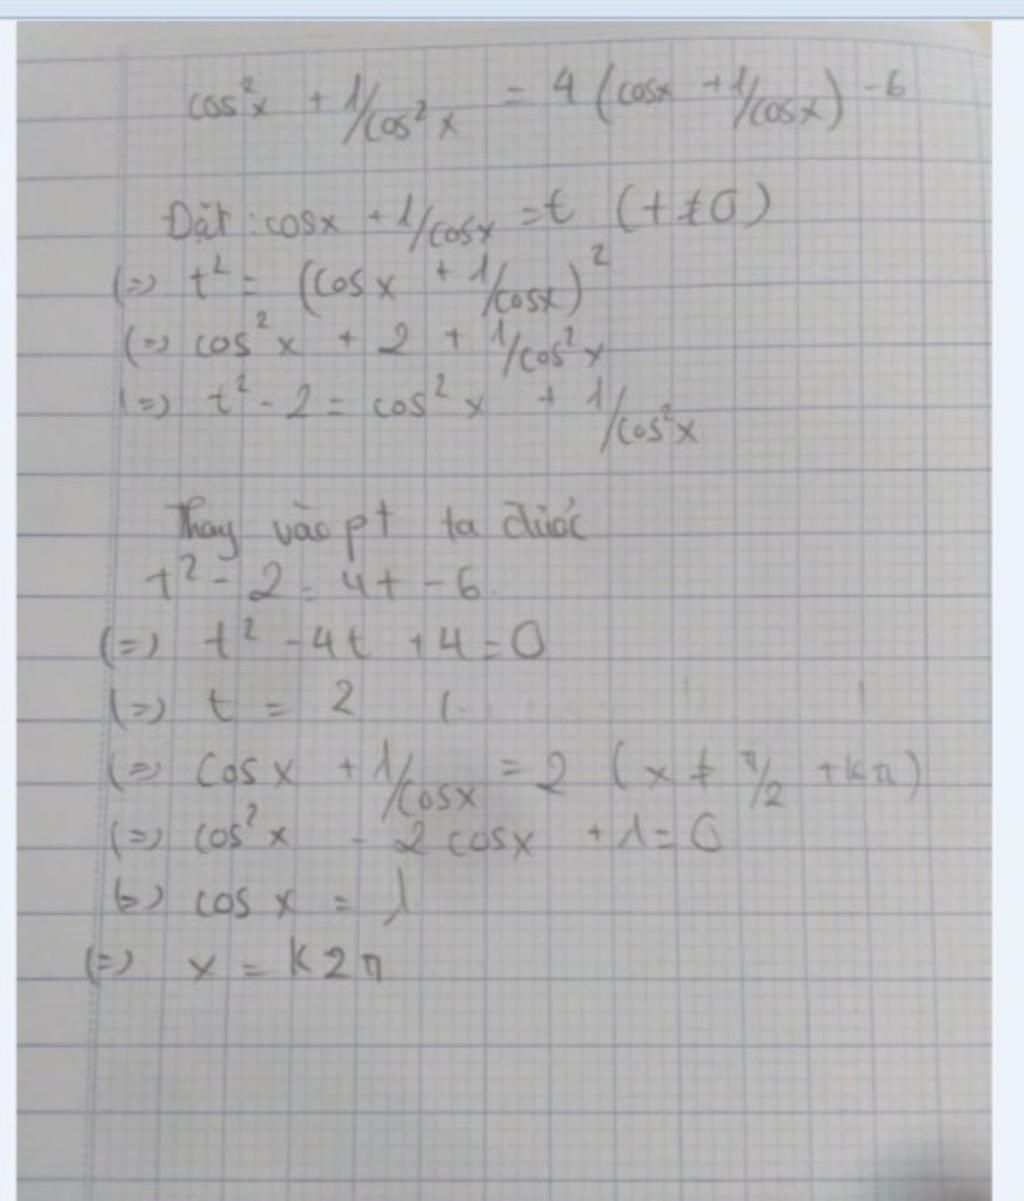 cos²x + 1/cos²x = 4 (cosx + 1/cosx) - 6
Đặt : cosx + 1/cosx = t (t ≠ 0)
(=) t² = (cosx + 1/cosx)²
(=) cos²x + 2 + 1/cos²x
(=) t² - 2 = cos²x + 1/cos²x
Thay vào pt ta được
t² - 2 = 4t - 6
(=) t² - 4t + 4 = 0
(=) t = 2 (
(=) cosx + 1/cosx = 2 (x ≠ π/2 + kπ)
(=) cos²x - 2cosx + 1 = 0
(=) cosx = 1
(=) x = k2π